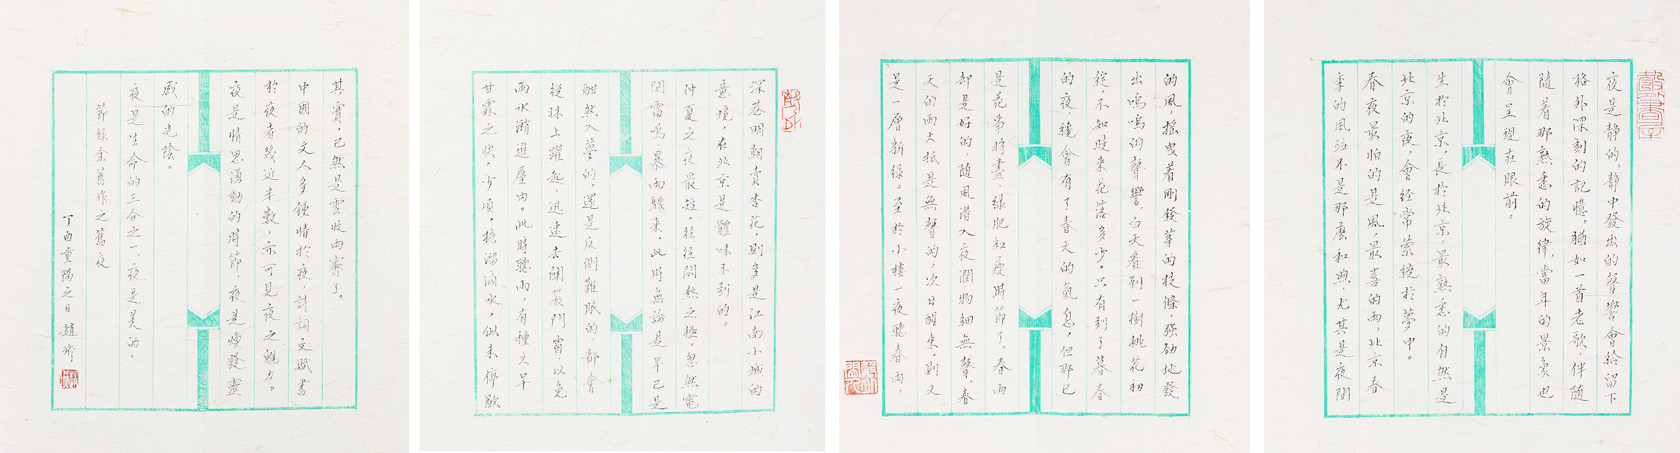 夜是静的，静中發出的聲響會給留下
格外深刻的記憶，猶如一首老歌，伴隨
隨着那熟悉的旋律，當年的景象也
會呈現在眼前。
生於北京，長於北京，最熟悉的自然是
北京的夜，會经常萦繞於夢中。
春夜最怕的是風，最喜的雨，北京春
季的風並不是那麽和煦，尤其是夜間
的風，摇曳着剛發芽的枝條，强劲地發
出嗚嗚的聲響。白天看到一樹桃花初
綻，不如晚來花落多少。只有到了暮春
的夜，纔會有了春天的氣息，但那已
是花事將盡，緑肥紅瘦時節了。春雨
却是好的，随風潜入夜，潤物細無聲，春
天的雨大抵是無聲的，次日醒來，則又
是一層新緑。至於小樓一夜聽春雨，
深巷明朝賣杏花，則多是江南小城的
意境，在北京是體味不到的。
仲夏之夜最短，往往悶熱之極，忽然電
閃雷鳴，暴雨驟來，此時無論是早已是
酣然入夢的，還是反側難眠的，都會
從牀上躍起，迅速去關嚴門窗，以免
雨水潲進屋内。此時聽雨，有種久旱
甘霖之快。少頃，檐溜滴水，似未停歇
其實，已然是雲收雨霽了。
中國的文人多鍾情於夜，詩詞文賦書
於夜者幾近半數，亦可見夜之魅力。
夜是情思湧動的時節，夜是煥發靈
感的光陰。
夜是生命的三分之一，夜是美的。
節録余舊作之舊夜
丁酉重陽之日趙珩